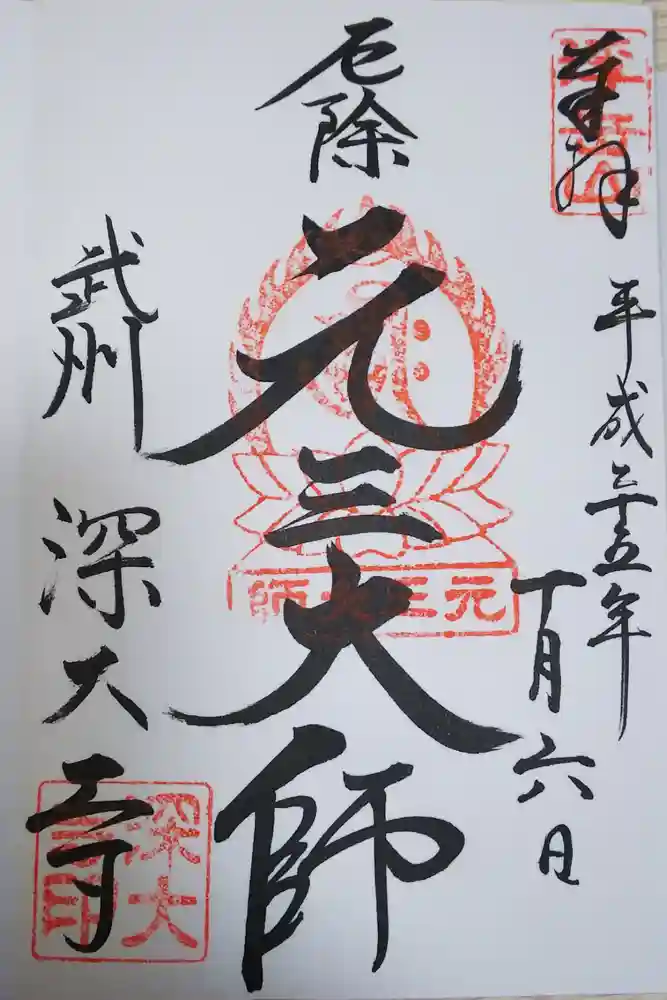 奉拝
平成二十五年
一月六日
厄除
元三大師
武州
深大寺
元三大師
深大寺印